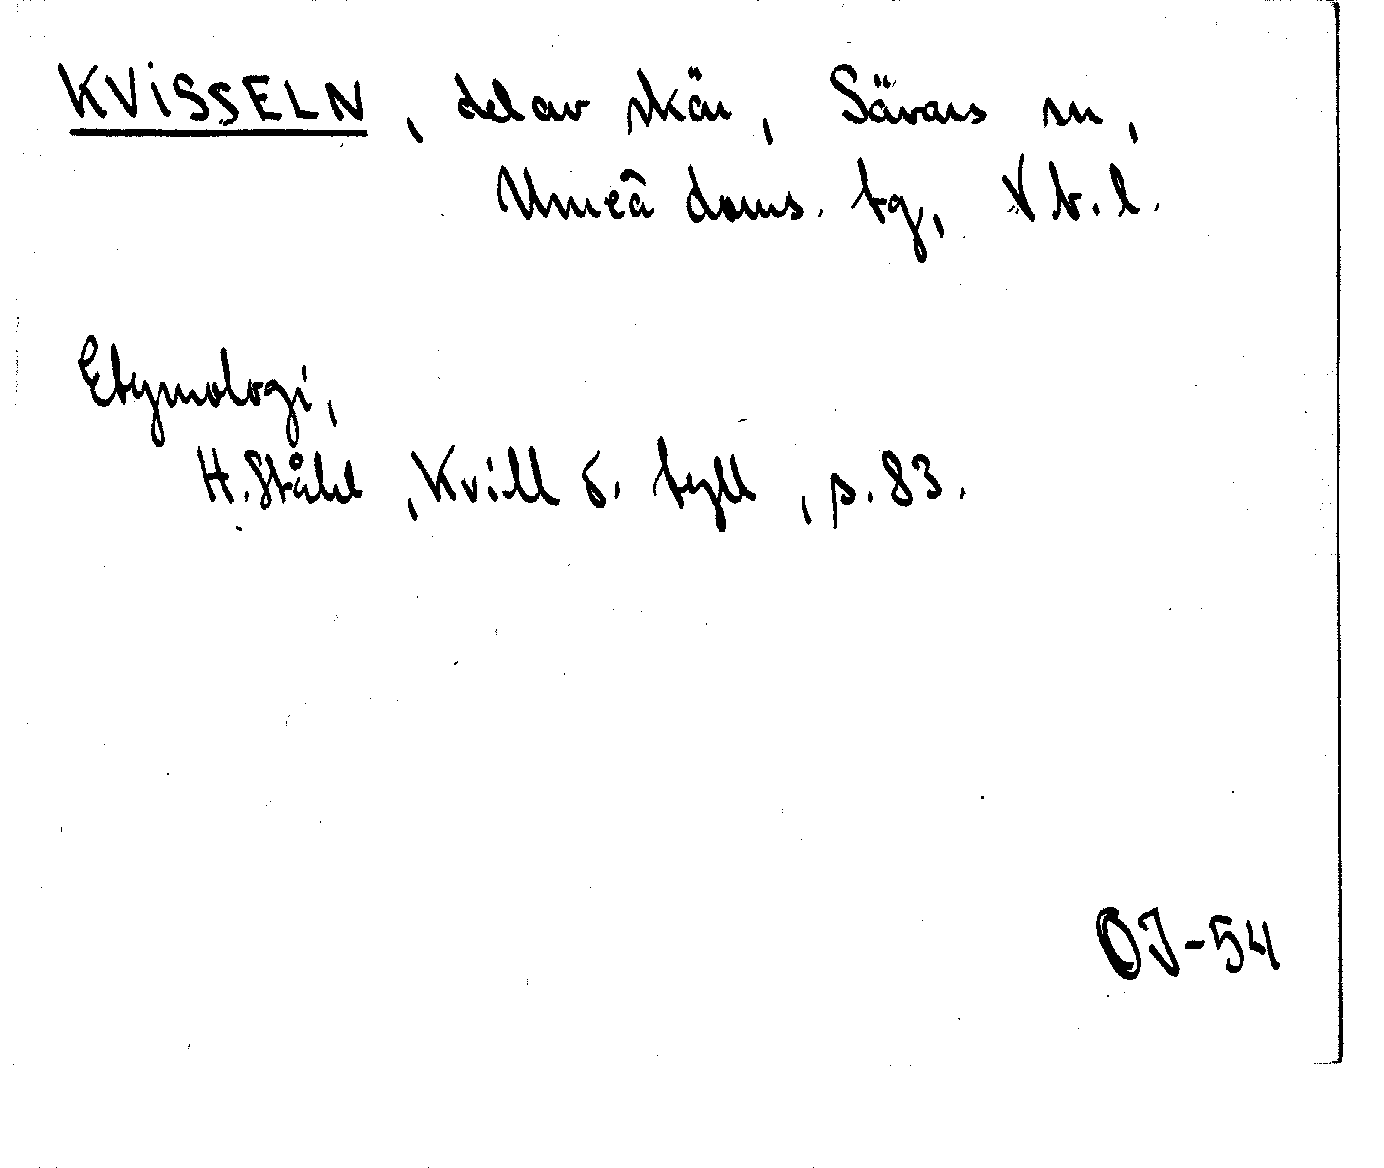 KVISSELN, del av skär, Sävars sn,
Umeå doms. tg, Vb. l.
Etymologi,
H. Ståhl, Kvill o. tyll, s. 83.
OJ-54